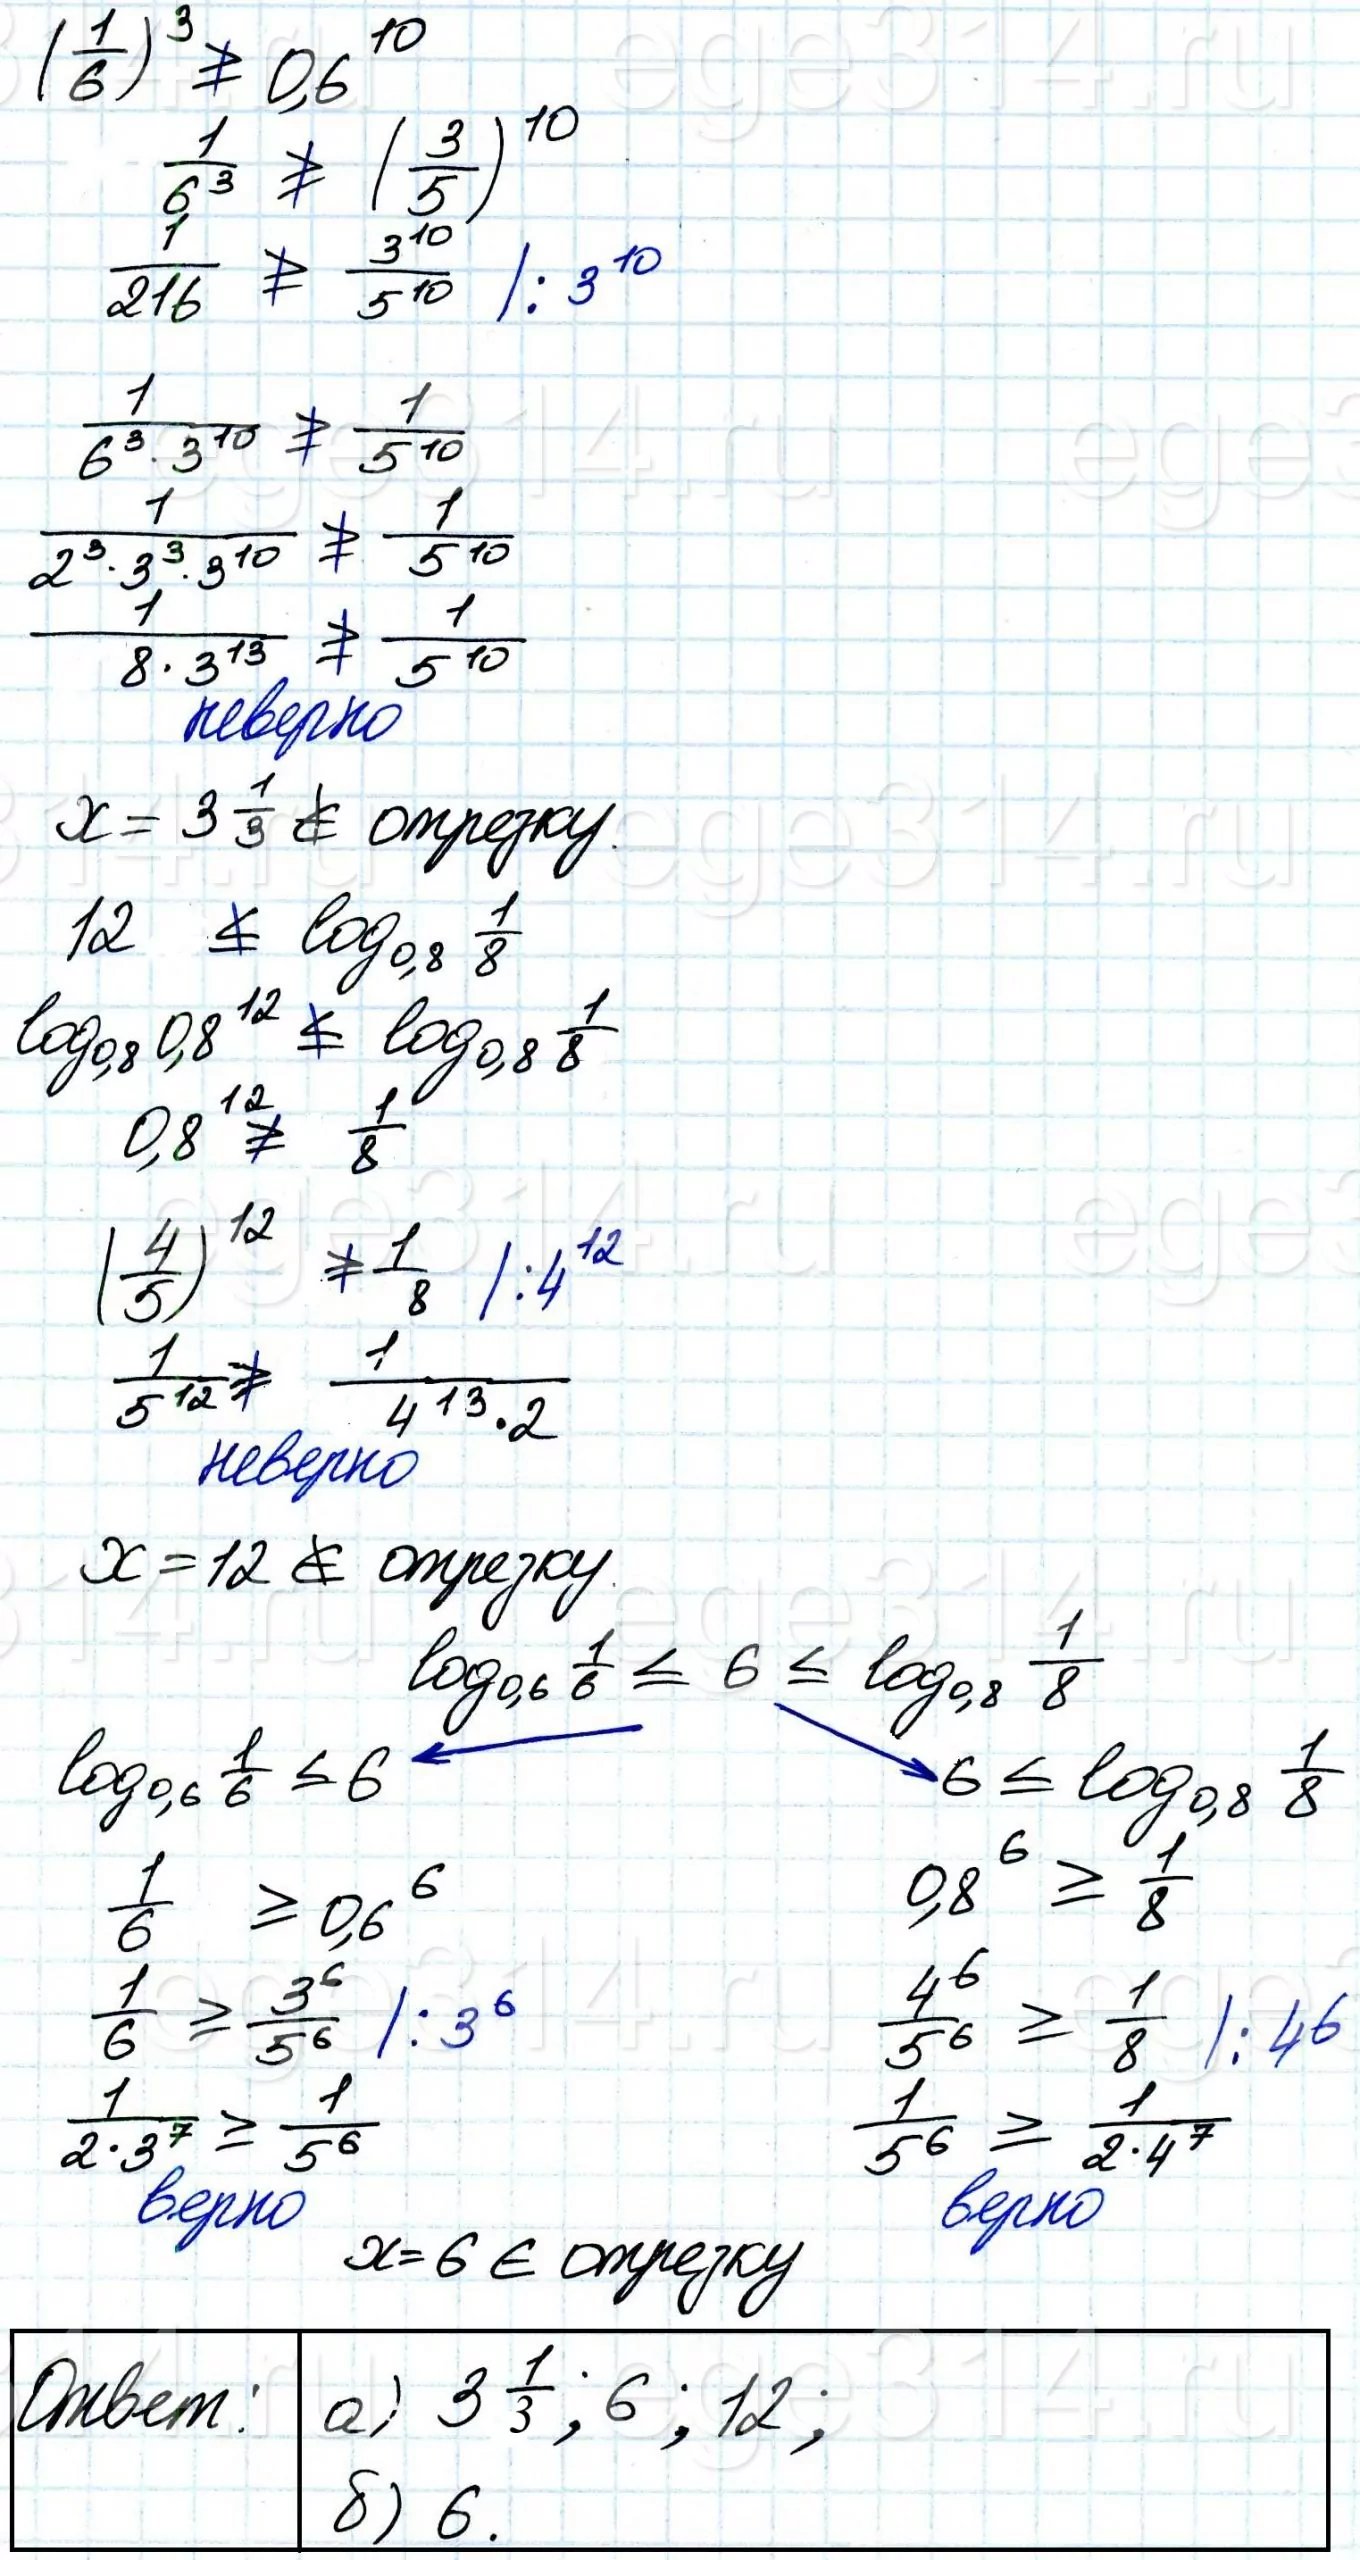 (1/6)³ ≱ 0,6¹⁰
1/6³ ≱ (3/5)¹⁰
1/216 ≱ 3¹⁰/5¹⁰ |: 3¹⁰
1/(6³·3¹⁰) ≱ 1/5¹⁰
1/(2³·3³·3¹⁰) ≱ 1/5¹⁰
1/(8·3¹³) ≱ 1/5¹⁰
неверно
x = 3 1/3 ∉ отрезку.
12 ≰ log₀,₈ 1/8
log₀,₈ 0,8¹² ≰ log₀,₈ 1/8
0,8¹² ≱ 1/8
(4/5)¹² ≱ 1/8 |: 4¹²
1/5¹² ≱ 1/(4¹³·2)
неверно
x = 12 ∉ отрезку.
log₀,₆ 1/6 ≤ 6 ≤ log₀,₈ 1/8
log₀,₆ 1/6 ≤ 6
6 ≤ log₀,₈ 1/8
1/6 ≥ 0,6⁶
0,8⁶ ≥ 1/8
1/6 ≥ 3⁶/5⁶ |: 3⁶
4⁶/5⁶ ≥ 1/8 |: 4⁶
1/(2·3⁷) ≥ 1/5⁶
1/5⁶ ≥ 1/(2·4⁷)
верно
верно
x = 6 ∈ отрезку
Ответ: а) 3 1/3; 6; 12;
б) 6.
ege314.ru